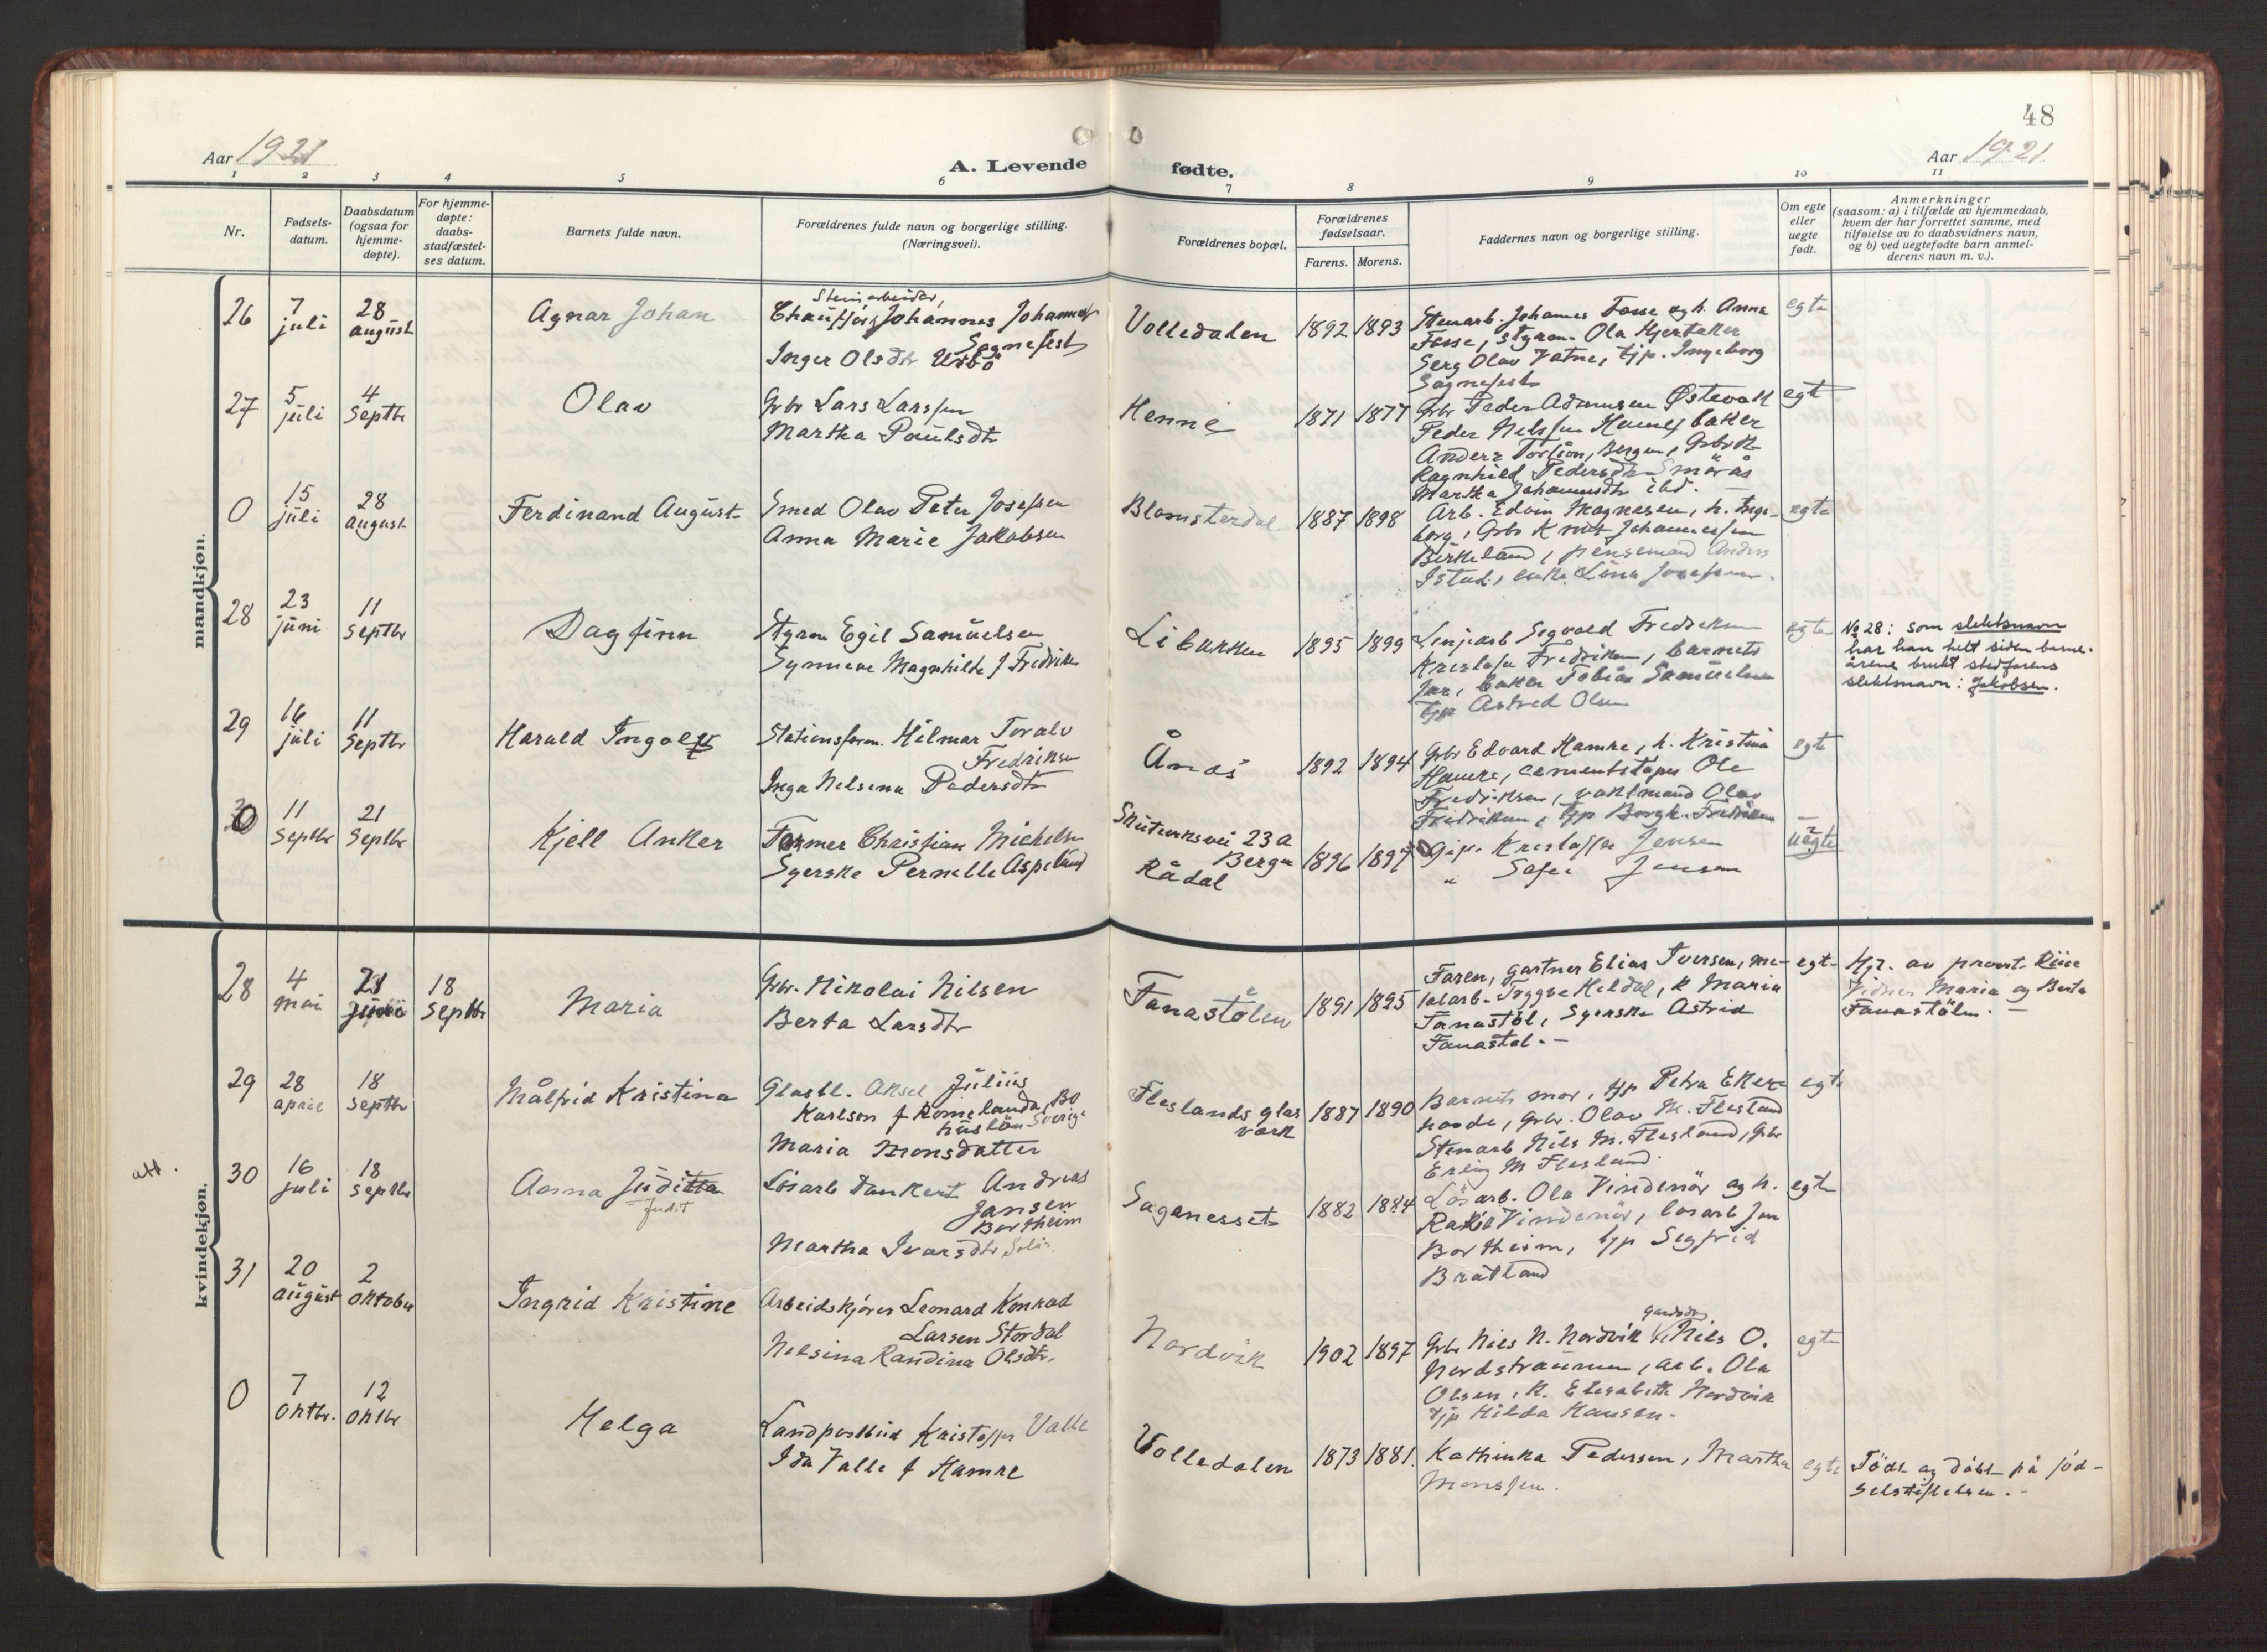 48
Aar 1921
A. Levende
fødte.
Aar 1921
1 2 3 4 5 6 7 8 9 10 11
Nr.
Fødsels-
datum.
Daabsdatum
(ogsaa for
hjemme-
døpte).
For hjemme-
døpte:
daabs-
stadfæstel-
ses datum.
Barnets fulde navn.
Forældrenes fulde navn og borgerlige stilling.
(Næringsvei).
Forældrenes bopæl.
Forældrenes
fødselsaar.
Farens. Morens.
Faddernes navn og borgerlige stilling.
Om egte
eller
uegte
født.
Anmerkninger
(saasom: a) i tilfælde av hjemmedaab,
hvem der har forrettet samme, med
tilføielse av to daabsvidners navn,
og b) ved uegtefødte barn anmel-
derens navn m. v.).
mandkjøn.
26
7
juli
28
august
Agnar Johan
Steinarbeider,
Chauffør Johannes Johannes
Sognefest
Inger Olsdtr Urbö
Volledalen
1892 1893
Stenarb. Johannes Fosse og h. Anna
Fosse, styrm. Ola Hjertaker
Serg Olav Vatne, tjp. Ingeborg
Sognefest
egte
27
5
juli
4
Septbr
Olav
Gbr Lars Larssen
Martha Paulsdtr
Henne
1871 1877
Gbr Peder Adamsen Østevoll
Peder Nelssen Hamre, baker
Anders Torsion, Bergen, Gbrk
Ragnhild Pedersdtr Smörås
Martha Johannesdtr ibd.
egte
0
15
juli
28
august
Ferdinand August
Smed Olav Peter Josefsen
Anna Marie Jakobsen
Blomsterdal
1887 1898
Arb. Edvin Magnesen, h. Inge-
borg, Gbr Knut Johannessen
Birkeland, pensemand Anders
Istad, enke Lina Josefsen.
egte
28
23
juni
11
Septbr
Dagfinn
Styrm Egil Samuelsen
Synneve Magnhilde f Fredriksen
Libakken
1895 1899
Linjearb Sigvald Fredriksen
Kristofer Fredriksen, barnets
far, baker Tobias Samuelsen
tjp Astrid Olsen
egte
No 28: som slektsnavn
har han helt siden barne-
årene brukt stedfarens
slektsnavn: Jakobsen.
29
16
juli
11
Septbr
Harald Ingolf
Stationsform. Hilmar Toralv
Fredriksen
Inga Nelsina Pedersdtr
Ånes
1892 1894
Gbr Edvard Hamre, h. Kristina
Hamre, cementstøper Ole
Fredriksen, vaktmand Olav
Fredriksen, tjp Borgh. Fredriksen
egte
30
11
Septbr
21
Septbr
Kjell Anker
Former Christian Michelsen
Syerske Pernille Aspelund
Skuteviksvei 23a
Bergen
Rådal
1896 1897
Gip. Kristoffer Jensen
" Sofie Jensen
uegte
kvindekjøn.
28
4
mai
21
18
Septbr
Maria
Gbr. Nikolai Nilsen
Berta Larsdtr
Fanastölen
1891 1895
Faren, gartner Elias Iversen, me-
talarb. Tryggve Hildal, k Maria
Fanastöl, Syerske Astrid
Fanastøl. —
egte
Hjd. av provst Riise
Vidner Maria og Berta
Fanastölen. —
29
28
april
18
Septbr
Målfrid Kristina
Glasbl. Aksel Julius
Karlsen f Romelanda, Bo
huslän Sverige
Maria Monsdatter
Fleslands glas
verk
1887 1890
Barnets mor, tjp Petra Eker-
hovde, Gbr. Olav M. Flesland
Stenarb Nils M. Flesland, Gbr
Erling M Flesland.
egte
att.
30
16
juli
18
Septbr
Aasna Juditta
Judit
Løsarb Dankert Andreas
Jansen
Bortheim
Martha Ivarsdtr
Saganesset
1882 1884
Løsarb. Ola Vindenör og h.
Rakel Vindenör, løsarb Jan
Bortheim, tjp Sigfrid
Bratland
egte
31
20
august
2
oktober
Ingrid Kristine
Arbeidskjører Leonard Konrad
Larsen Stordal
Nelsina Randina Olsdtr.
Nordvik
1902 1897
Gaardbr
Gbr Nils N. Nordvik, Nils O.
Nordstraumen, arb. Ola
Olsen, k. Elisabeth Nordvik
tjp Hilda Hansen.
egte
0
7
Oktbr.
12
Oktbr
Helga
Landpostbud Kristoffer Valle
Ida Valle f Hamre
Volledalen
1873 1881.
Kathinka Pedersen, Martha
Monssen.
egte
Födt og döbt på föd-
selsstiftelsen. -